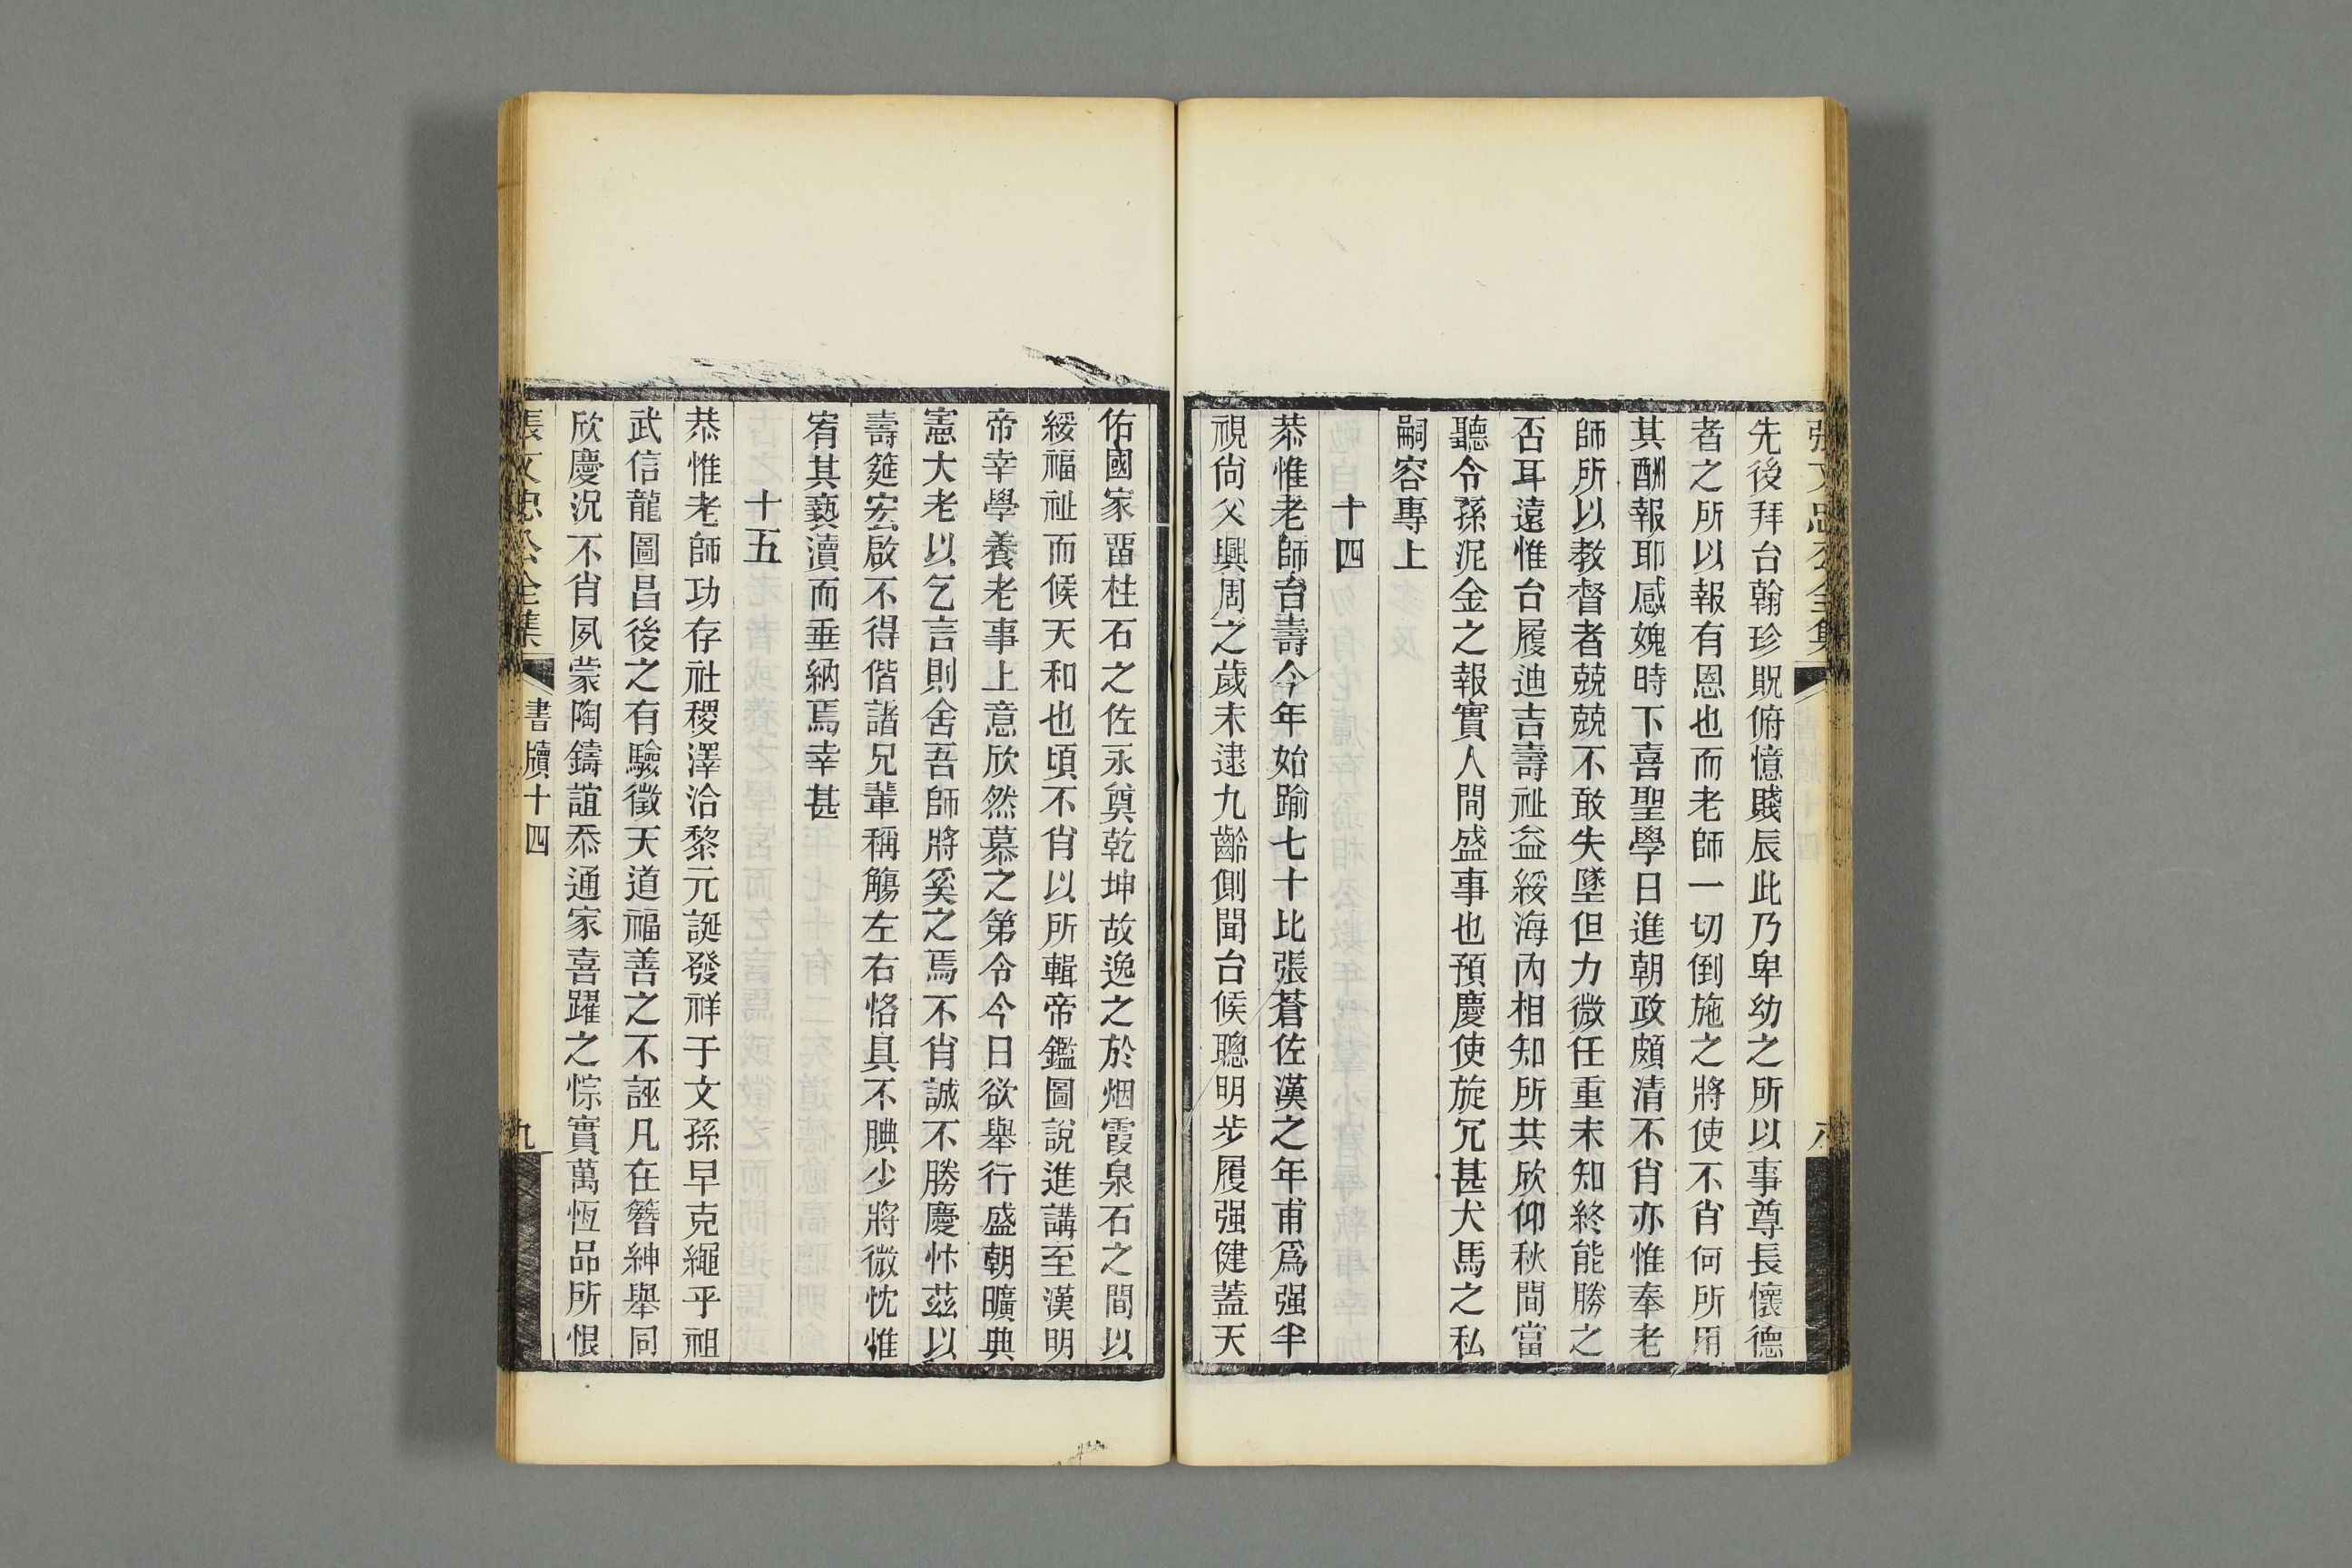 先後拜台翰珍貺俯憶賤辰此乃卑幼之所以事尊長懷德
者之所以報有恩也而老師一切倒施之將使不肖何所用
其酬報耶感媿時下喜聖學日進朝政頗清不肖亦惟奉老
師所以教督者兢兢不敢失墜但力微任重未知終能勝之
否耳遠惟台履迪吉壽祉益綏海內相知所共欣仰秋間當
聽令孫泥金之報實人間盛事也預慶使旋冗甚犬馬之私
嗣容專上
十四
恭惟老師台壽今年始踰七十比張蒼佐漢之年甫爲强半
視尙父興周之歲未逮九齡側聞台候聰明步履强健蓋天
佑國家畱柱石之佐永奠乾坤故逸之於烟霞泉石之間以
綏福祉而候天和也頃不肖以所輯帝鑑圖說進講至漢明
帝幸學養老事上意欣然慕之第令今日欲舉行盛朝曠典
憲大老以乞言則舍吾師將奚之焉不肖誠不勝慶忭茲以
壽筵宏啟不得偕諸兄輩稱觴左右恪具不腆少將微忱惟
宥其褻瀆而垂納焉幸甚
十五
恭惟老師功存社稷澤洽黎元誕發祥于文孫早克繩乎祖
武信龍圖昌後之有驗徵天道福善之不誣凡在簪紳舉同
欣慶況不肖夙蒙陶鑄誼忝通家喜躍之悰實萬恆品所恨
張文忠公全集 書牘十四 九